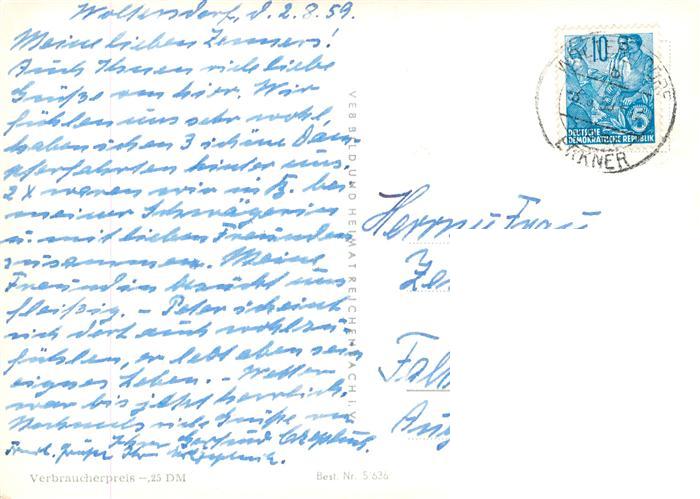 Woltersdorf, d. 2.8.59.
Meine lieben Zenners!
Auch Ihnen viele liebe
Grüße von hier. Wir
fühlen uns sehr wohl,
haben schon 3 schöne Dam-
pferfahrten hinter uns.
2x waren wir in B. bei
meiner Schwägerin
u. mit lieben Freunden
zusammen. Meine
Freundin besucht uns
fleißig. – Peter scheint
sich dort auch wohlzu-
fühlen, er lebt aben sein
eigenes Leben. – Wetter
war bis jetzt herrlich.
Nochmals viele Grüße von
Ihrer Gertrud
Fredl. Grüße Ihr
VEB BILD UND HEIMAT REICHENBACH I. V.
Verbraucherpreis –,25 DM
Best. Nr. 5/636
10
5
DEUTSCHE
DEMOKRATISCHE REPUBLIK
ERKNER
Herrn u. Frau
Ze
Fal
Au